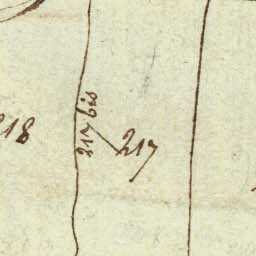 218
217 bis
217